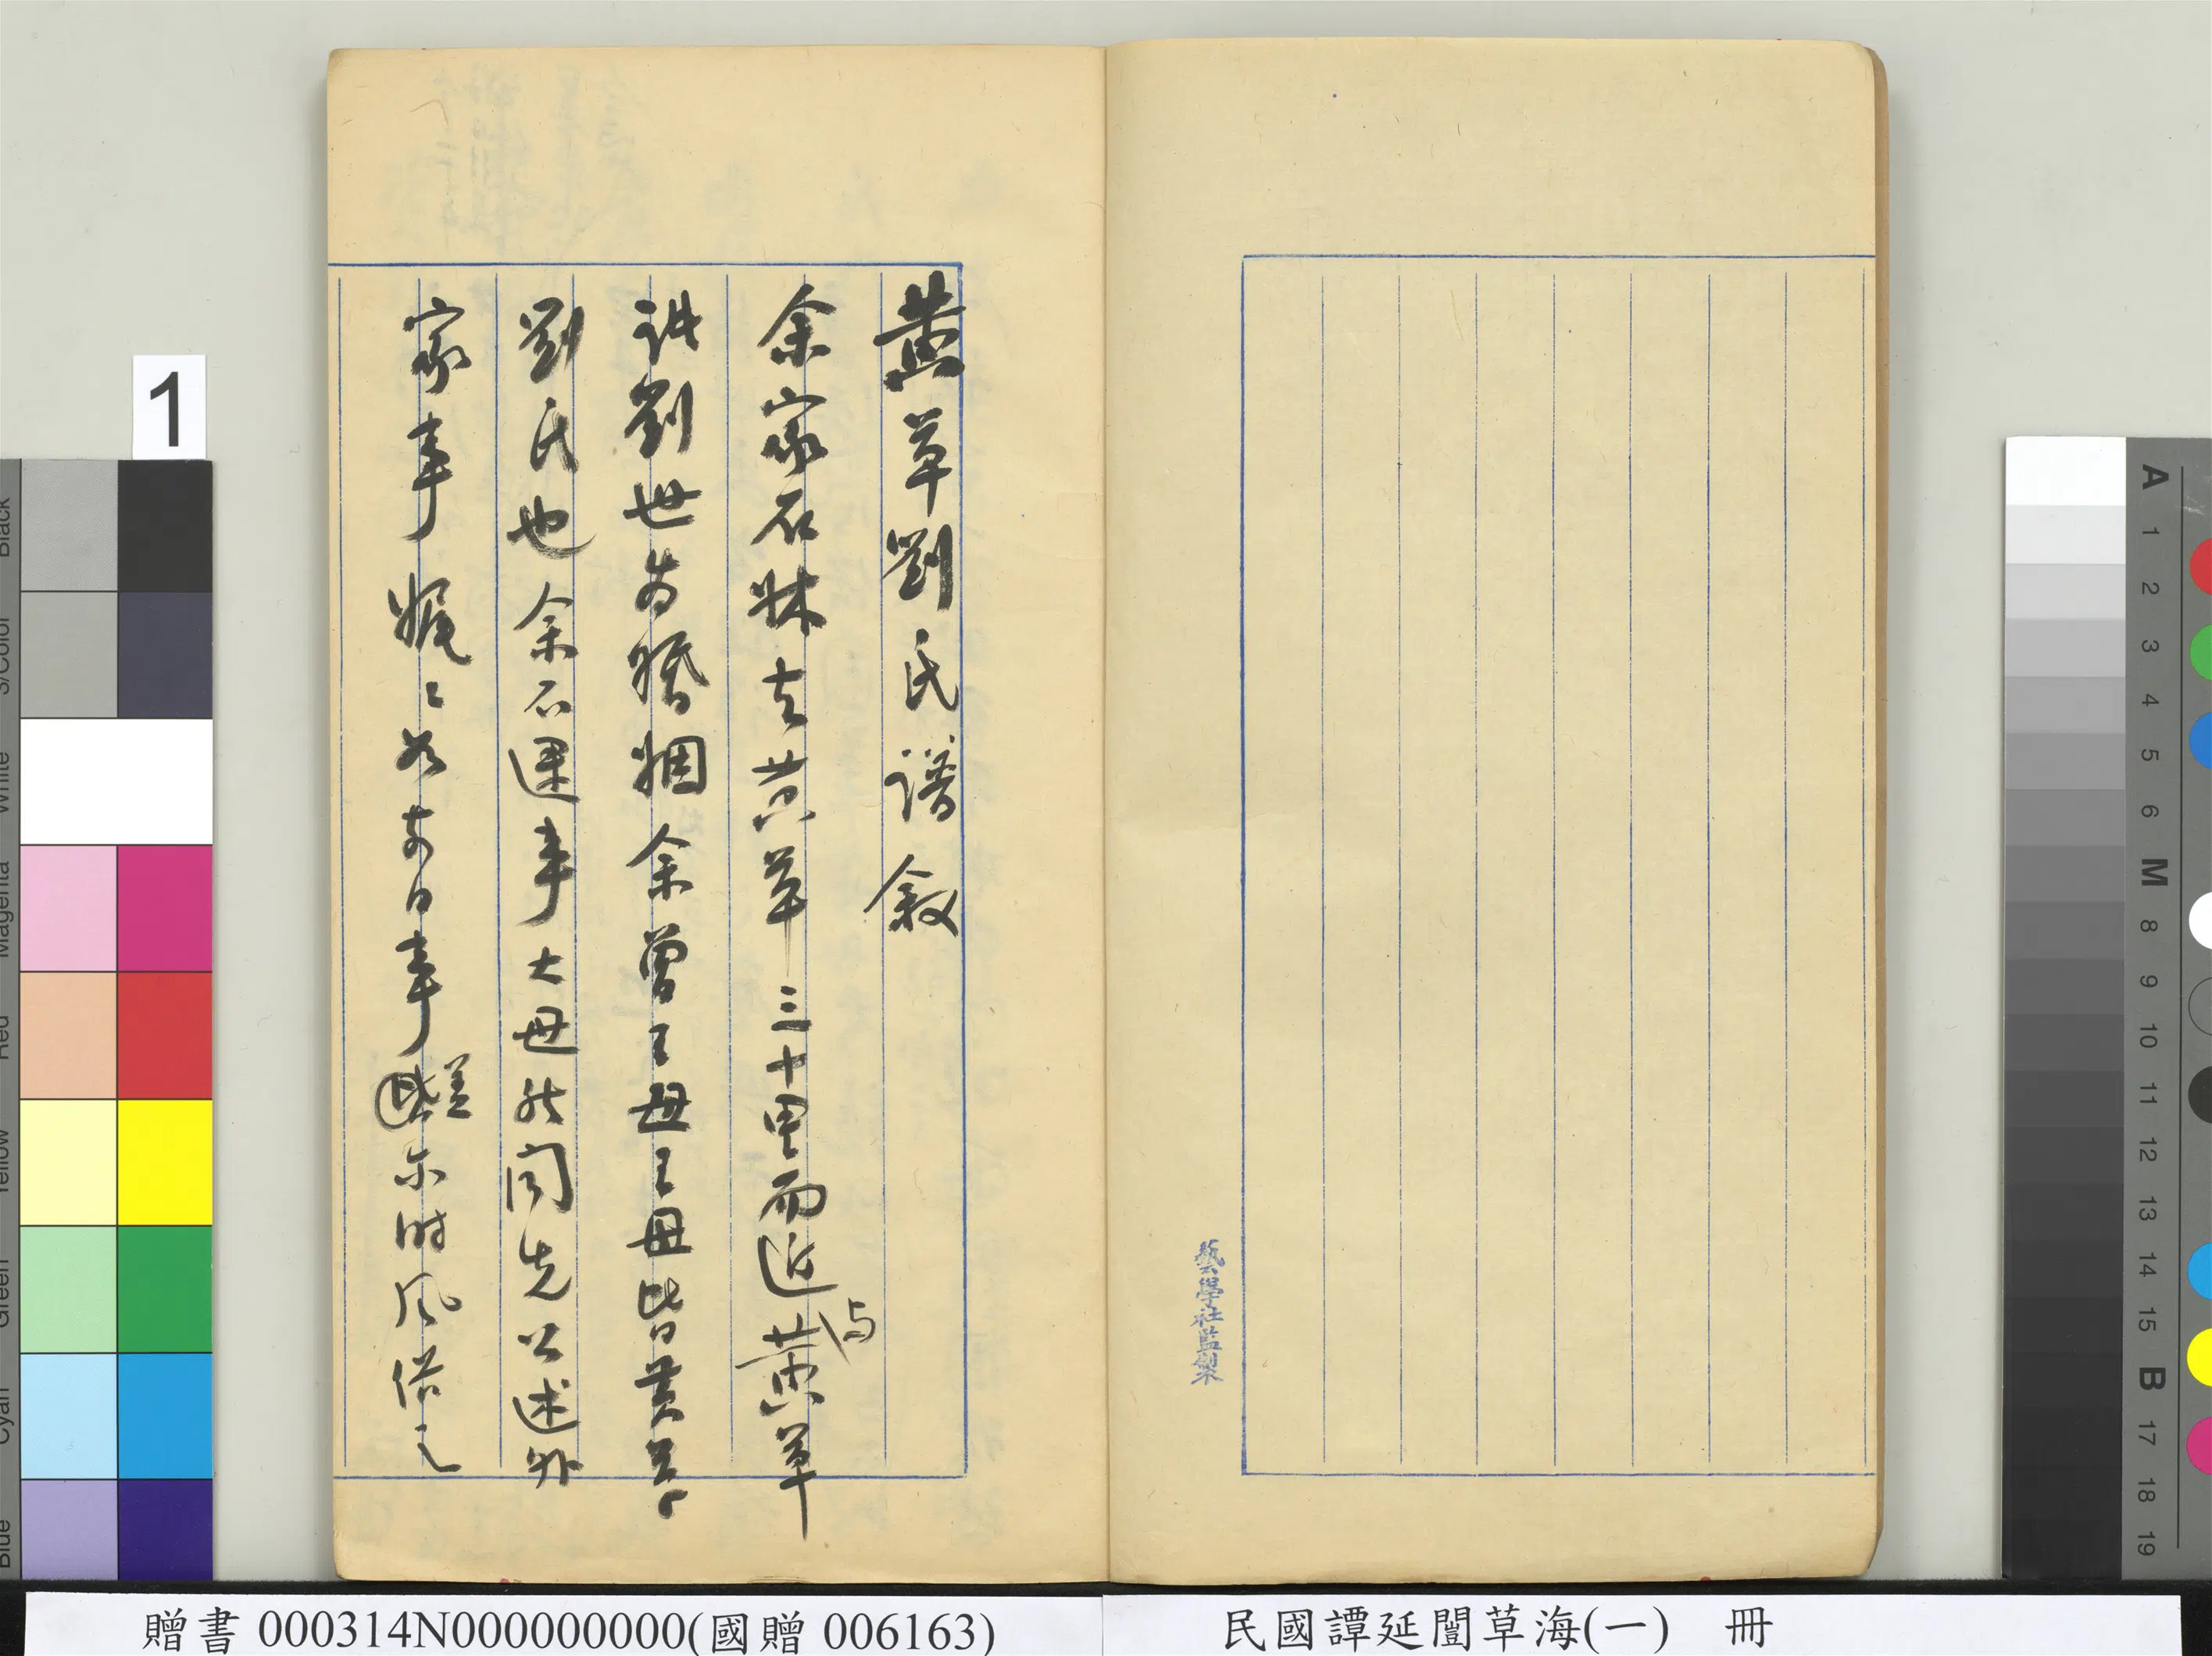 藝學社監製
黃草劉氏譜敘
余家石牀去黃草三十里而近与黃草
諸劉世為婚姻余曾王母王母皆黃草
劉氏也余不逮事大母然聞先公述外
家事娓〻如前日事蓋尔時風俗之
1
贈書 000314N000000000(國贈 006163)
民國譚延闓草海(一) 冊
Black
3/Color
White
Magenta
Red
Yellow
Green
Cyan
Blue
A
1
2
3
4
5
6
M
8
9
10
11
12
13
14
15
B
17
18
19